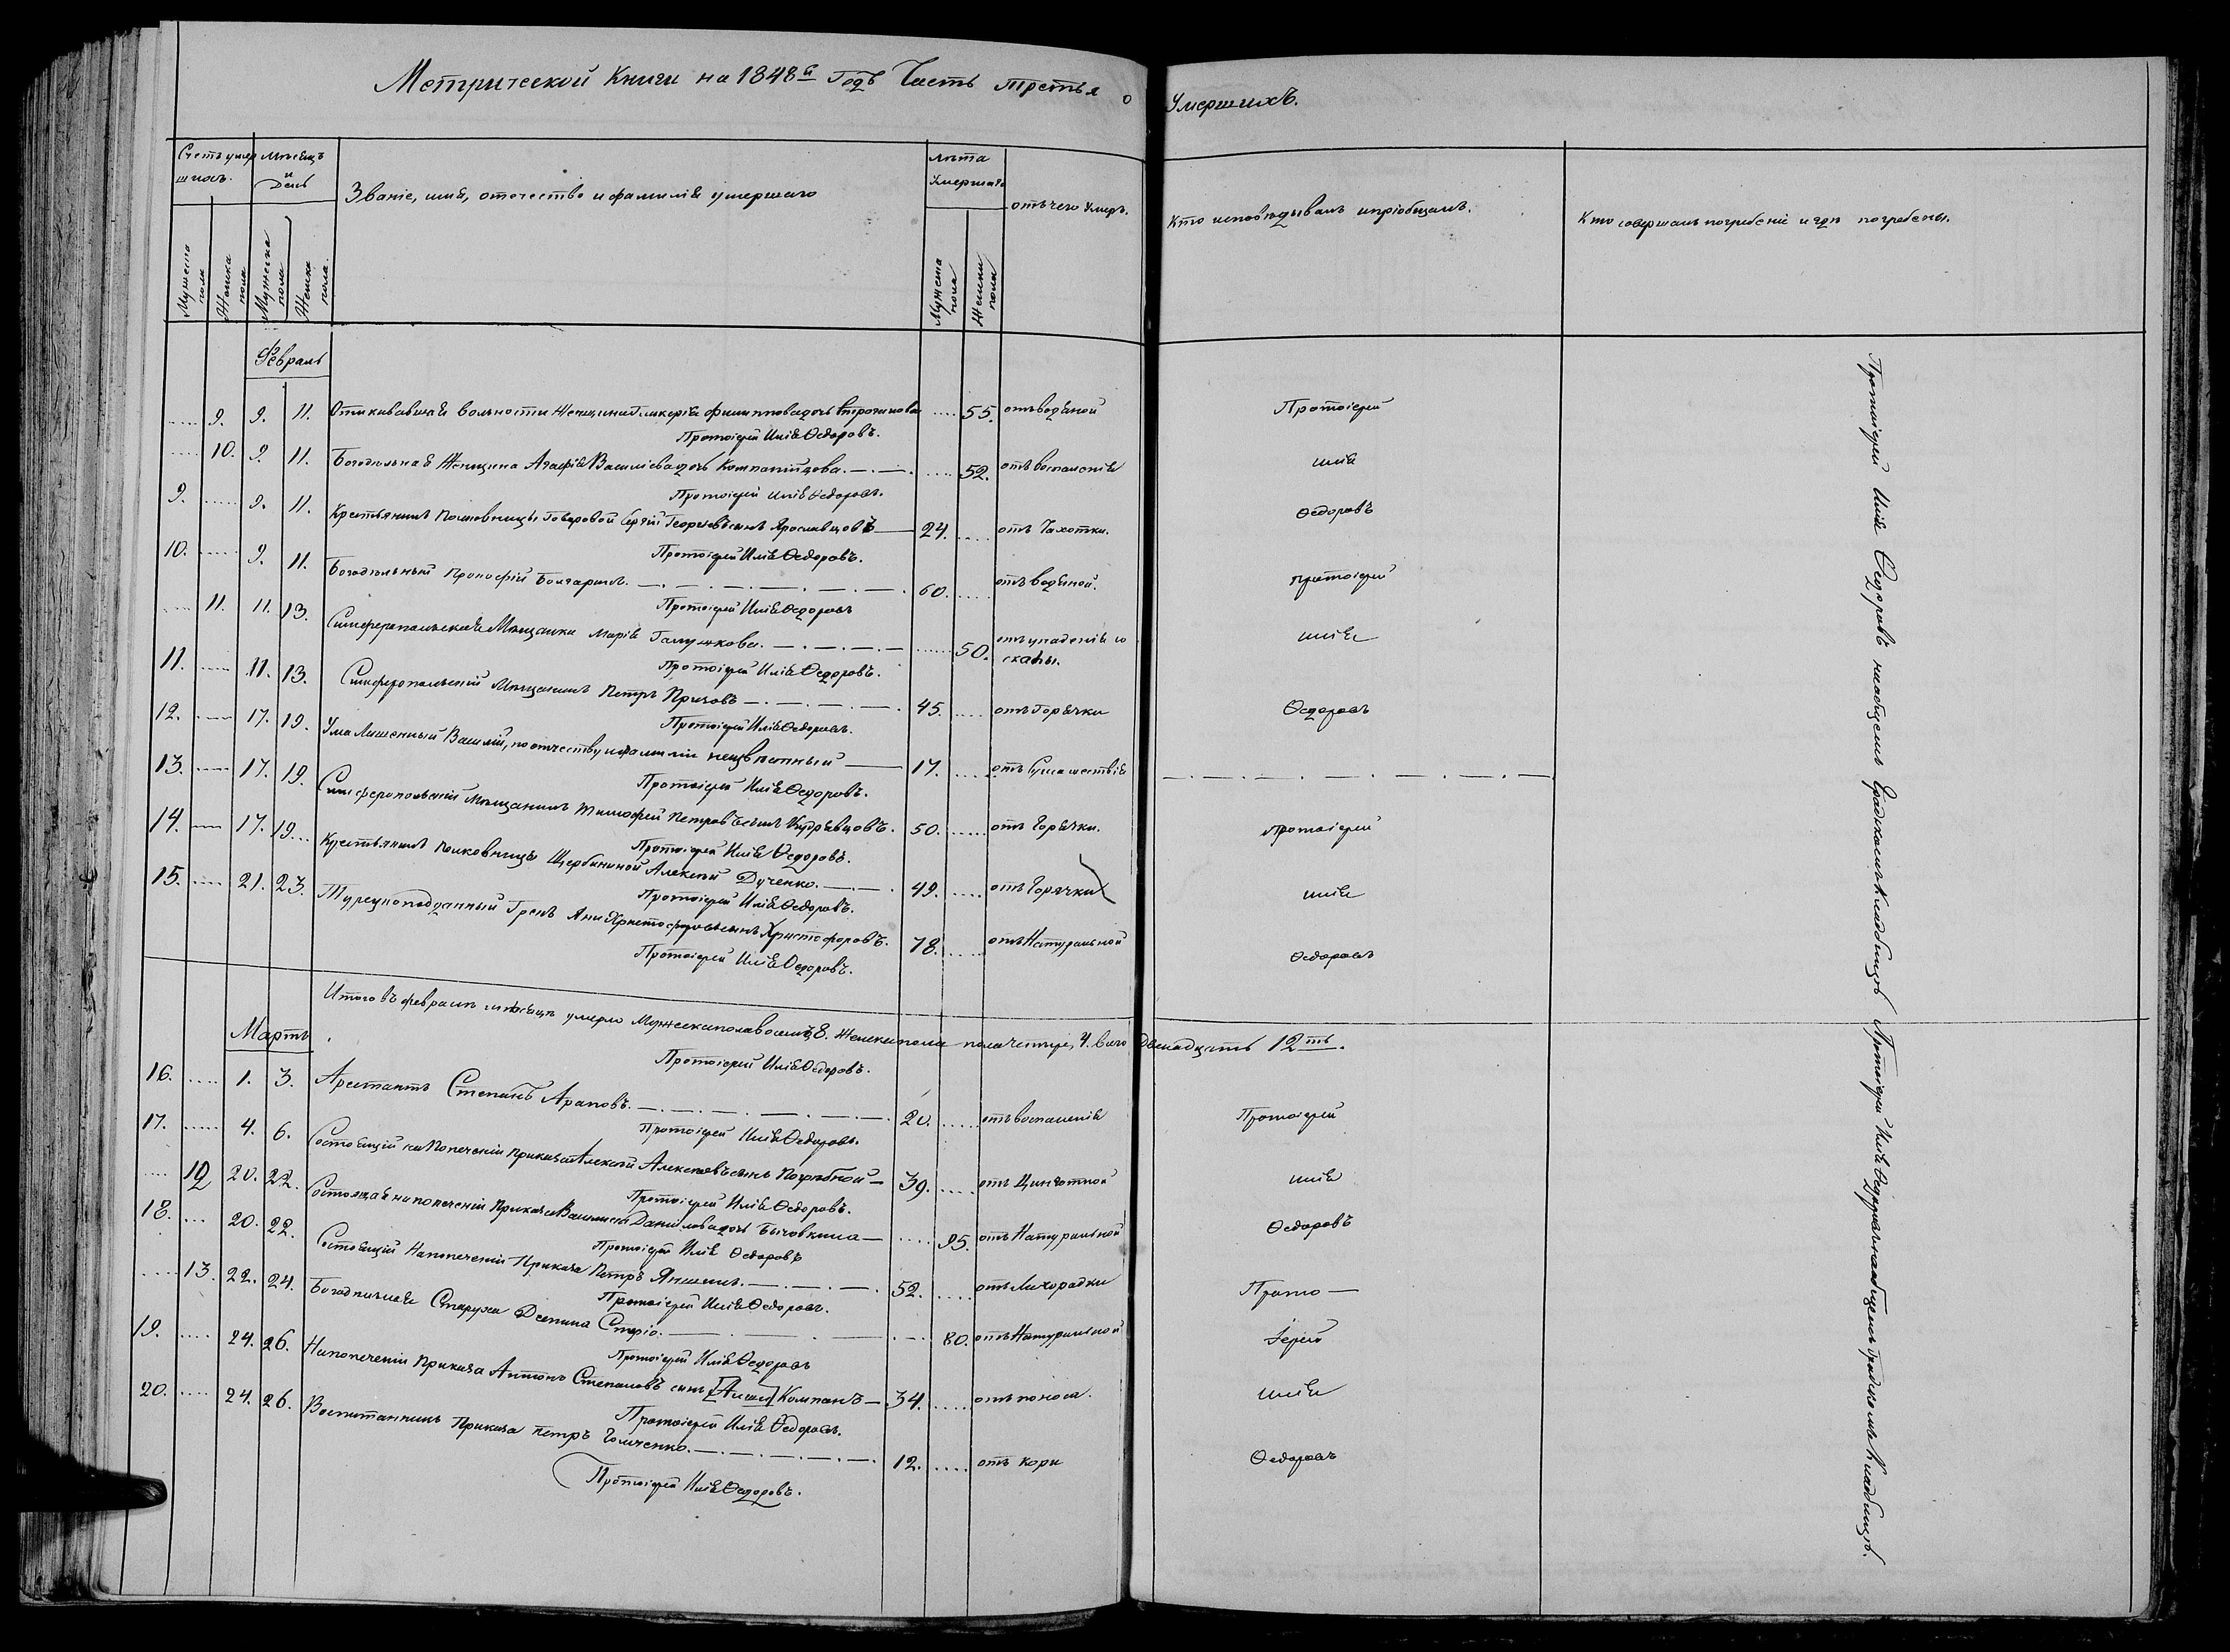 Метрической Книги на 1848й Годъ Часть третья о Умершихъ.
Счетъ умер шихъ.
Мѣсяцъ и День
Званіе, имя, отечество и фамилія умершаго
Лѣта Умершаго
отъ чего умеръ.
Кто исповѣдывалъ и пріобщалъ.
Кто совершалъ погребеніе и гдѣ погребены.
Мужеска пола
Женска пола
Мужеска пола
Женска пола.
Мужеска пола
Женски пола
Февраль
..... 9. 9. 11. Отыскивавшая вольности Женщина Гликерія Филиппова дочь ..... 55. отъ водяной Протоіерей
Протоіерей Илія Ѳедоровъ.
..... 10. 9. 11. Богодѣльная Женщина Агафія Васильева дочь Компанійцова. ..... 52. отъ воспаленія Илія
Протоіерей Илія Ѳедоровъ.
9. ..... 9. 11. Крестьянинъ Полковницы Говоровой Сергій Георгіевъ сынъ Ярославцовъ 24. .... отъ Чахотки. Ѳедоровъ
Протоіерей Илія Ѳедоровъ.
10. ..... 9. 11. Богодѣльный Прокофій Болгаринъ. 60. ..... отъ водяной. Протоіерей
Протоіерей Илія Ѳедоровъ
..... 11. 11. 13. Симферопольская Мѣщанка Марія Галушкова. ..... 50. отъ упаденія со скалы. Илія
Протоіерей Илія Ѳедоровъ.
11. ..... 11. 13. Симферопольскій Мѣщанинъ Петръ Причовъ 45. ..... отъ Горячки Ѳедоровъ
Протоіерей Илія Ѳедоровъ.
12. ..... 17. 19. Ума Лишенный Василій, по отчеству и фамиліи неизвѣстный 17. ..... отъ Сумашествія
Протоіерей Илія Ѳедоровъ.
13. ..... 17. 19. Симферопольскій Мѣщанинъ Тимофей Петровъ сынъ Кудрявцовъ. 50. ..... отъ Горячки. Протоіерей
Протоіерей Илія Ѳедоровъ.
14. ..... 17. 19. Крестьянинъ Полковницы Щербининой Алексѣй Дученко. 49. ..... отъ Горячки Илія
Протоіерей Илія Ѳедоровъ.
15. ..... 21. 23. Турецкоподданный Грекъ Яни Христофоровъ сынъ Христофоровъ. 78. ..... отъ Натуральной Ѳедоровъ
Протоіерей Илія Ѳедоровъ.
Итого въ февралѣ мѣсяцѣ умерло Мужеска пола восемь, 8. Женска пола четыре, 4. всего двенадцать 12ть.
Протоіерей Илія Ѳедоровъ.
Мартъ
16. ..... 1. 3. Арестантъ Степанъ Араповъ. 20. ..... отъ воспаленія Протоіерей
Протоіерей Илія Ѳедоровъ.
17. ..... 4. 6. Состоящій на Попеченіи Приказа Алексѣй Алексѣевъ сынъ Погребной 39. ..... отъ Цынготной Илія
Протоіерей Илія Ѳедоровъ.
..... 12 20. 22. Состоящая на попеченіи Приказа Василиса Данилова дочь Бычовкина ..... 95. отъ Натуральной Ѳедоровъ
Протоіерей Илія Ѳедоровъ
18. ... 20. 22. Состоящій На попеченіи Приказа Петръ Яншинъ. 52. .... отъ Лихорадки Прото
Протоіерей Илія Ѳедоровъ.
..... 13. 22. 24. Богодѣльная Старуха Деспина Стеріо. 80. отъ Натуральной Іерей
Протоіерей Илія Ѳедоровъ
19. .... 24. 26. На попеченіи Приказа Антонъ Степановъ сынъ Компанъ 34. ..... отъ поноса. Илія
Протоіерей Илія Ѳедоровъ.
20. .... 24. 26. Воспитанникъ Приказа Петръ Голченко. 12. .... отъ кори Ѳедоровъ
Протоіерей Илія Ѳедоровъ.
Протоіерей Илія Ѳедоровъ на общемъ Градскомъ Кладбищѣ
Протоіерей Илія Ѳедоровъ на общемъ градскомъ Кладбищѣ.